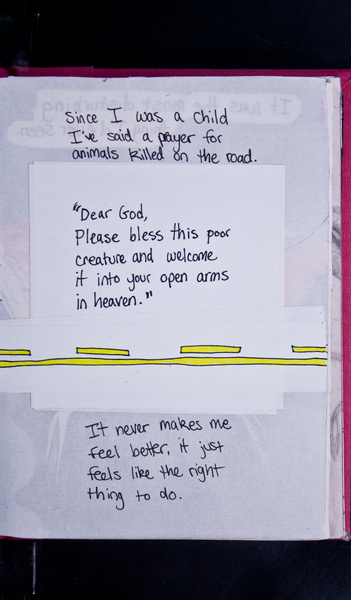 It was the most disturbing
seen
since I was a child
I've said a prayer for
animals killed on the road.
"Dear God,
Please bless this poor
creature and welcome
it into your open arms
in heaven."
It never makes me
feel better, it just
feels like the right
thing to do.